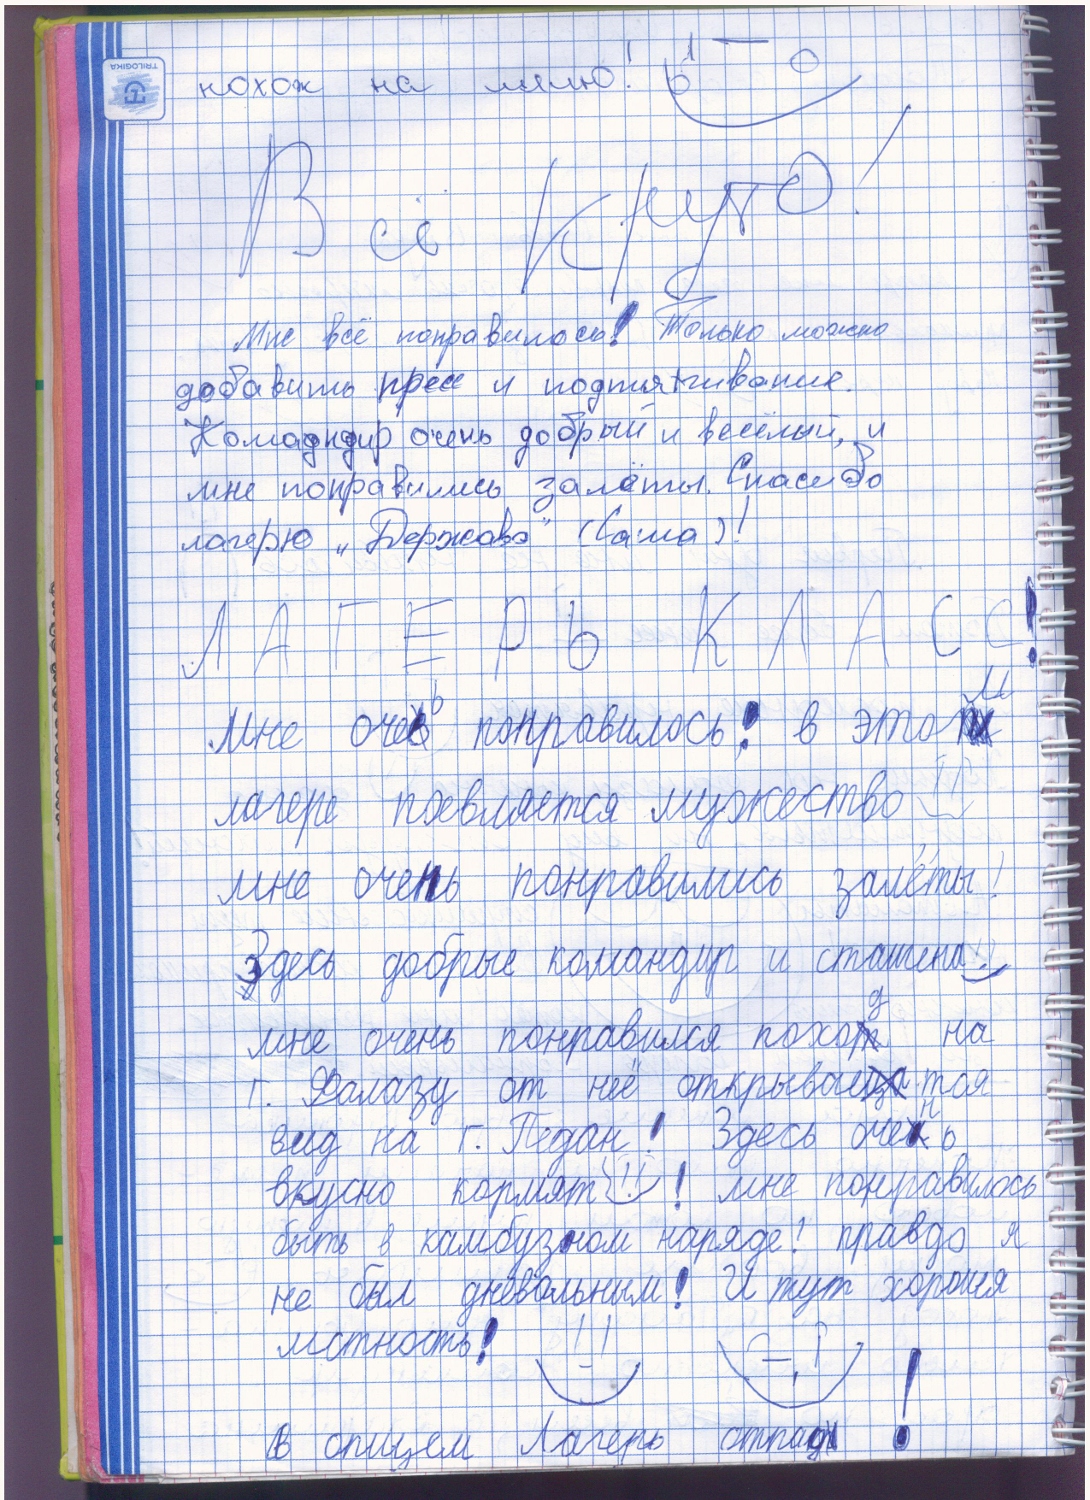 TRILOGIKA
похож на мялю!
Всё Круто!
Мне всё понравилось! Только можно
добавить пресс и подтягивание.
Командир очень добрый и весёлый, и
мне понравились залёты. Спасибо
лагерю „Держава" (Саша)!
ЛАГЕРЬ КЛАСС!
Мне очеь понравилось! в этом
лагере поевляется мужество
мне очень понравились залёты!
Здесь добрые командир и сташена
мне очень понравился поход на
г. Фалазу от неё открываетоя
вид на г. Пидан! Здесь очень
вкусно кормят! мне понравилось
быть в камбузном наряде! правдо я
не был дневальным! И тут хороша
мстность!
В опщем Лагерь